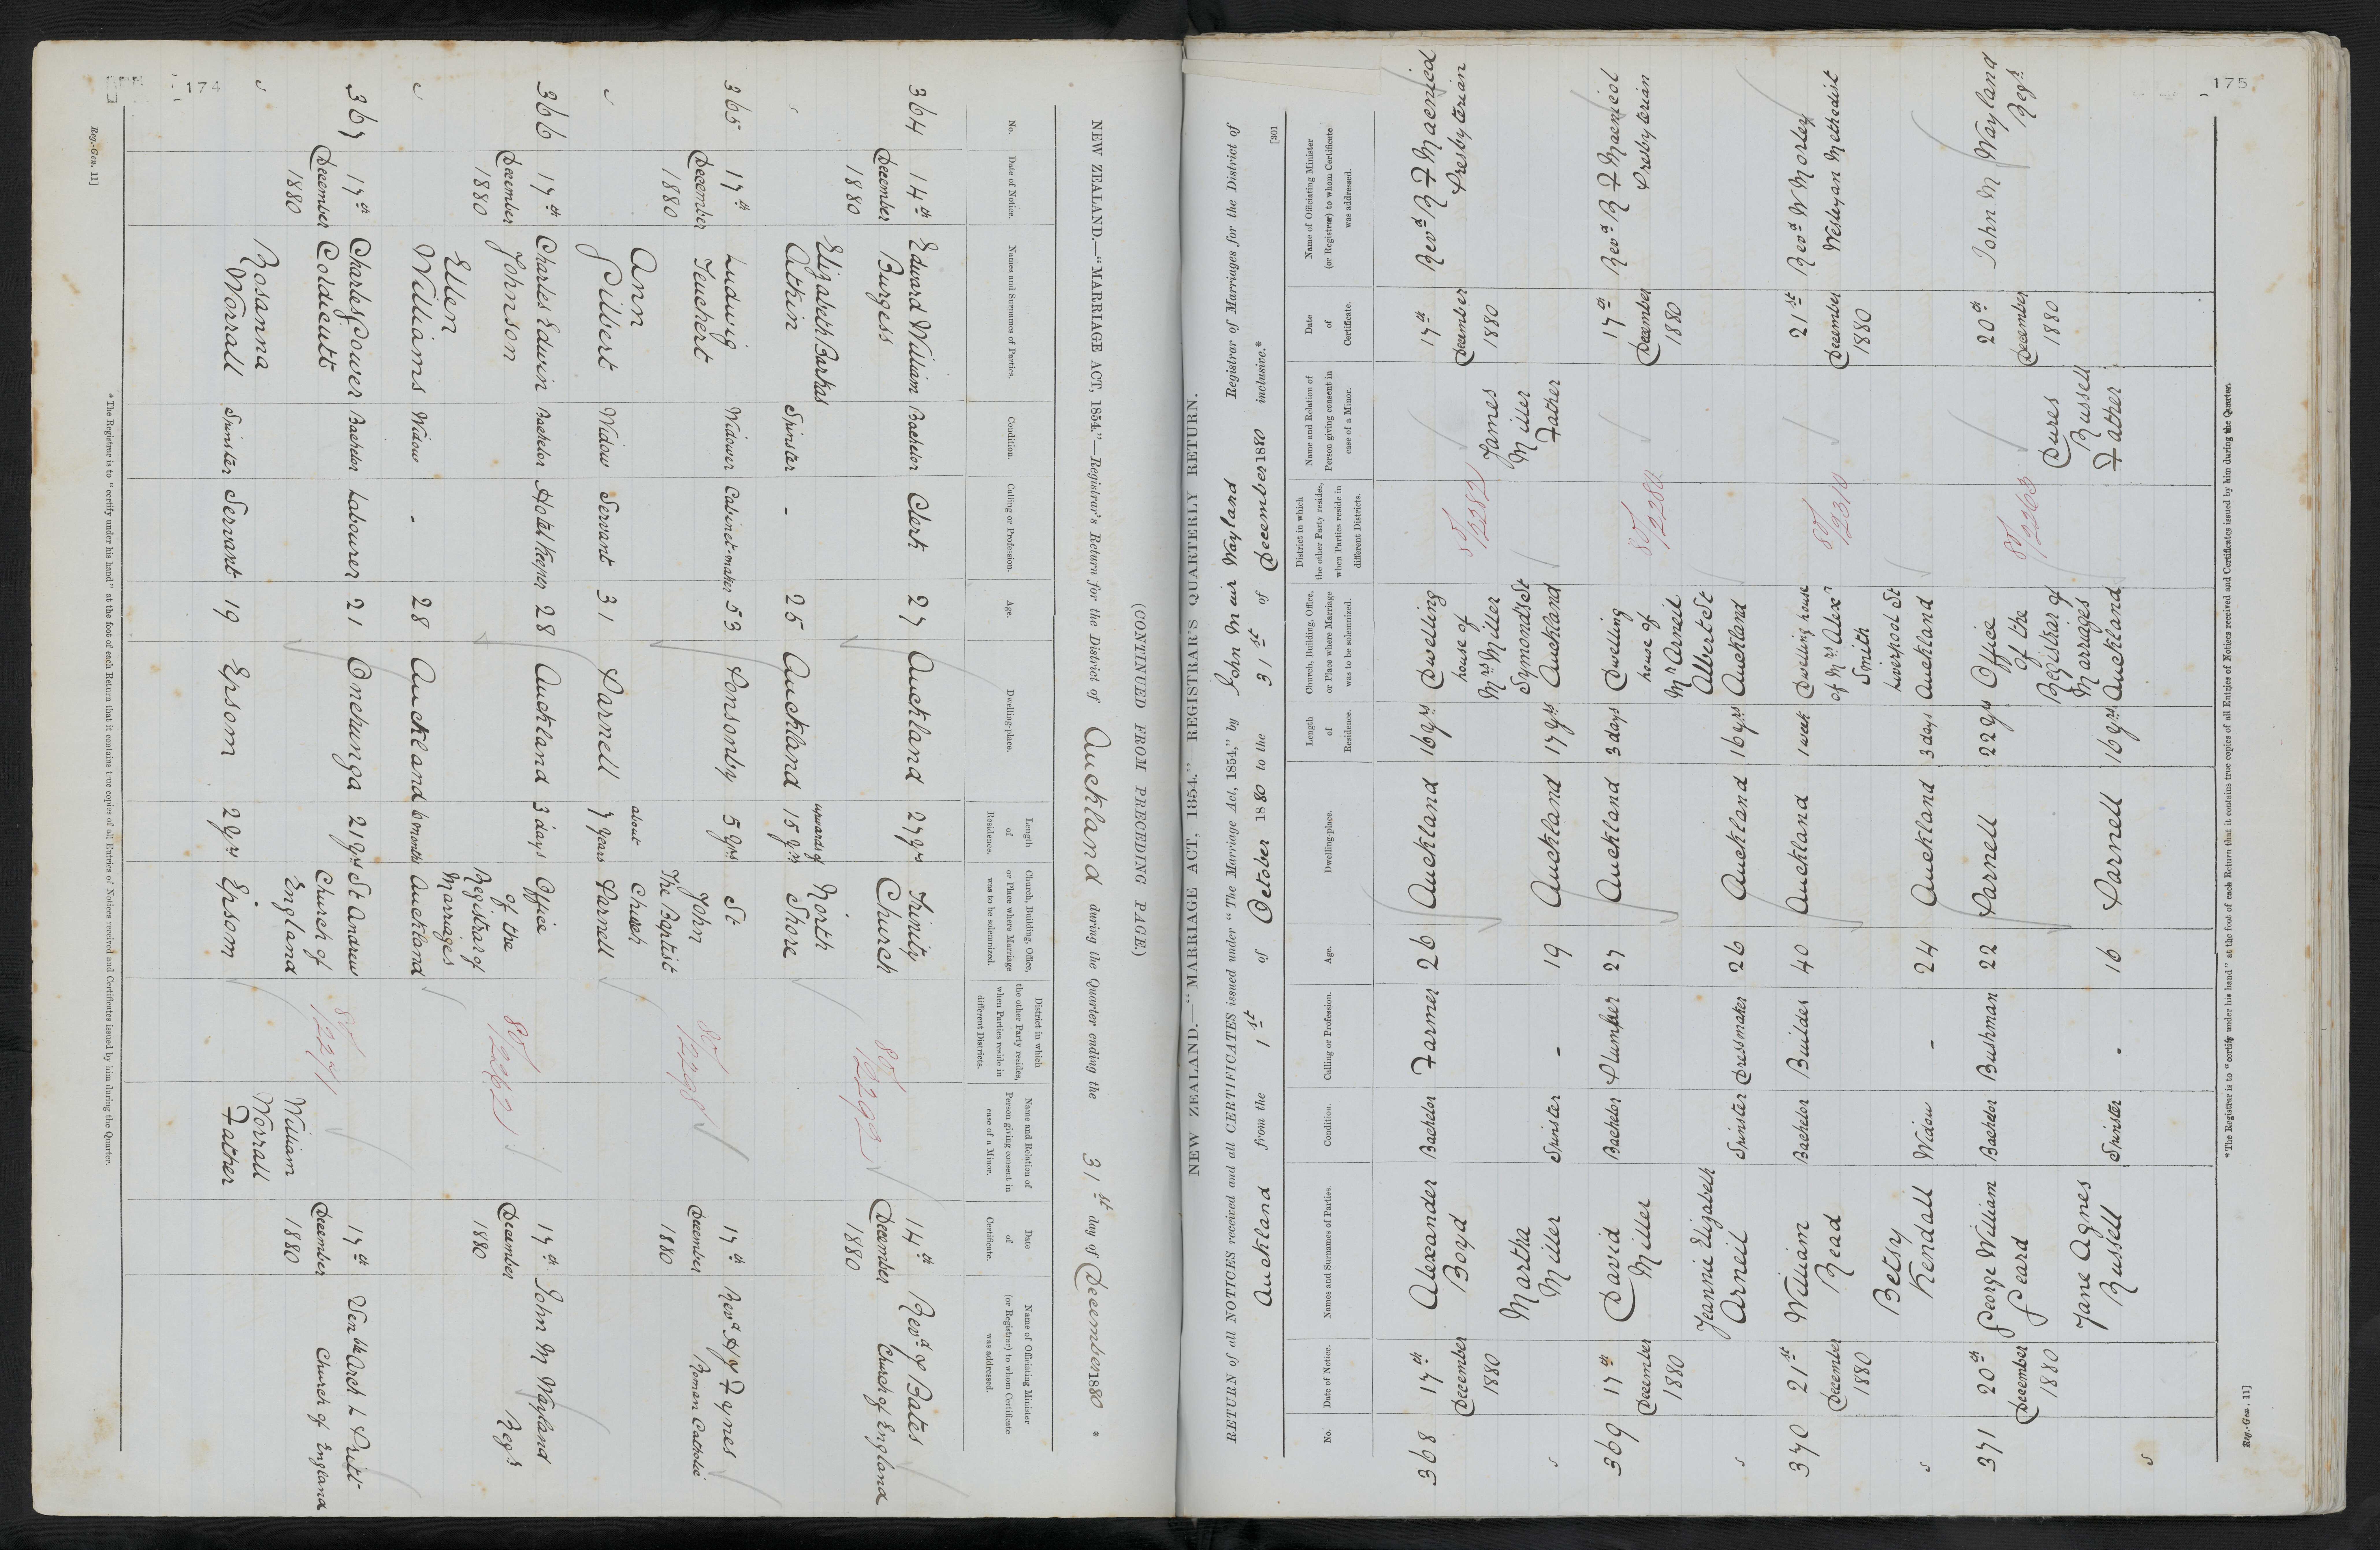 174
(CONTINUED FROM PRECEDING PAGE.)
NEW ZEALAND.—"MARRIAGE ACT, 1854."—Registrar's Return for the District of Auckland during the Quarter ending the 31st day of December 1880 *
No. Date of Notice. Names and Surnames of Parties. Condition. Calling or Profession. Age. Dwelling-place. Length of Residence. Church, Building, Office, or Place where Marriage was to be solemnized. District in which the other Party resides, when Parties reside in different Districts. Name and Relation of Person giving consent in case of a Minor. Date of Certificate. Name of Officiating Minister (or Registrar) to whom Certificate was addressed.
364 14th December 1880 Edward William Burgess Bachelor Clerk 27 Auckland 27 yrs Trinity Church 80/2292 14th December 1880 Revd J Bates Church of England
Elizabeth Barkas Atkin Spinster - 25 Auckland upwards of 15 yrs North Shore
365 17th December 1880 Ludwig Teuchert Widower Cabinet-maker 53 Ponsonby 5 yrs St John The Baptist Church 80/2298 17th December 1880 Revd H J Fynes Roman Catholic
Ann Gilbert Widow Servant 31 Parnell about 7 years Parnell
366 17th December 1880 Charles Edwin Johnson Bachelor Hotel Keeper 28 Auckland 3 days Office of the Registrar of Marriages 80/2262 17th December 1880 John M Wayland Regr
Ellen Williams Widow - 28 Auckland 6 months Auckland
367 17th December 1880 Charles Power Coldicutt Bachelor Labourer 21 Onehunga 21 yrs St Andrew Church of England 80/2271 17th December 1880 Venble Arch L Prill- Church of England
Rosanna Worrall Spinster Servant 19 Epsom 2 yrs Epsom William Worrall Father
* The Registrar is to "certify under his hand" at the foot of each Return that it contains true copies of all Entries of Notices received and Certificates issued by him during the Quarter.
Reg.-Gen. 11]
175
[301
NEW ZEALAND.—"MARRIAGE ACT, 1854."—REGISTRAR'S QUARTERLY RETURN.
RETURN of all NOTICES received and all CERTIFICATES issued under "The Marriage Act, 1854," by John Muir Wayland Registrar of Marriages for the District of
Auckland from the 1st of October 1880 to the 31st of December 1880 inclusive.*
No. Date of Notice. Names and Surnames of Parties. Condition. Calling or Profession. Age. Dwelling-place. Length of Residence. Church, Building, Office, or Place where Marriage was to be solemnized. District in which the other Party resides, when Parties reside in different Districts. Name and Relation of Person giving consent in case of a Minor. Date of Certificate. Name of Officiating Minister (or Registrar) to whom Certificate was addressed.
368 17th December 1880 Alexander Boyd Bachelor Farmer 26 Auckland 16 yrs Dwelling house of Mrs Miller Symonds St 80/2282 17th December 1880 Revd R F Macnicol Presbyterian
Martha Miller Spinster - 19 Auckland 17 yrs Auckland James Miller Father
369 17th December 1880 David Miller Bachelor Plumber 27 Auckland 3 days Dwelling house of Mr Arneil Albert St 17th December 1880 Revd R F Macnicol Presbyterian
Jeannie Elizabeth Arneil Spinster Dressmaker 26 Auckland 16 yrs Auckland
370 21st December 1880 William Read Bachelor Builder 40 Auckland 1 week Dwelling house of Mrs Alexr Smith Liverpool St 80/2310 21st December 1880 Revd W Morley Wesleyan Methodist
Betsy Kendall Widow - 24 Auckland 3 days Auckland
371 20th December 1880 George William Peard Bachelor Bushman 22 Parnell 22 yrs Office of the Registrar of Marriages 80/2263 20th December 1880 John M Wayland Regr
Jane Agnes Russell Spinster - 16 Parnell 16 yrs Auckland Russell Father
* The Registrar is to "certify under his hand" at the foot of each Return that it contains true copies of all Entries of Notices received and Certificates issued by him during the Quarter.
Reg.-Gen. 11]